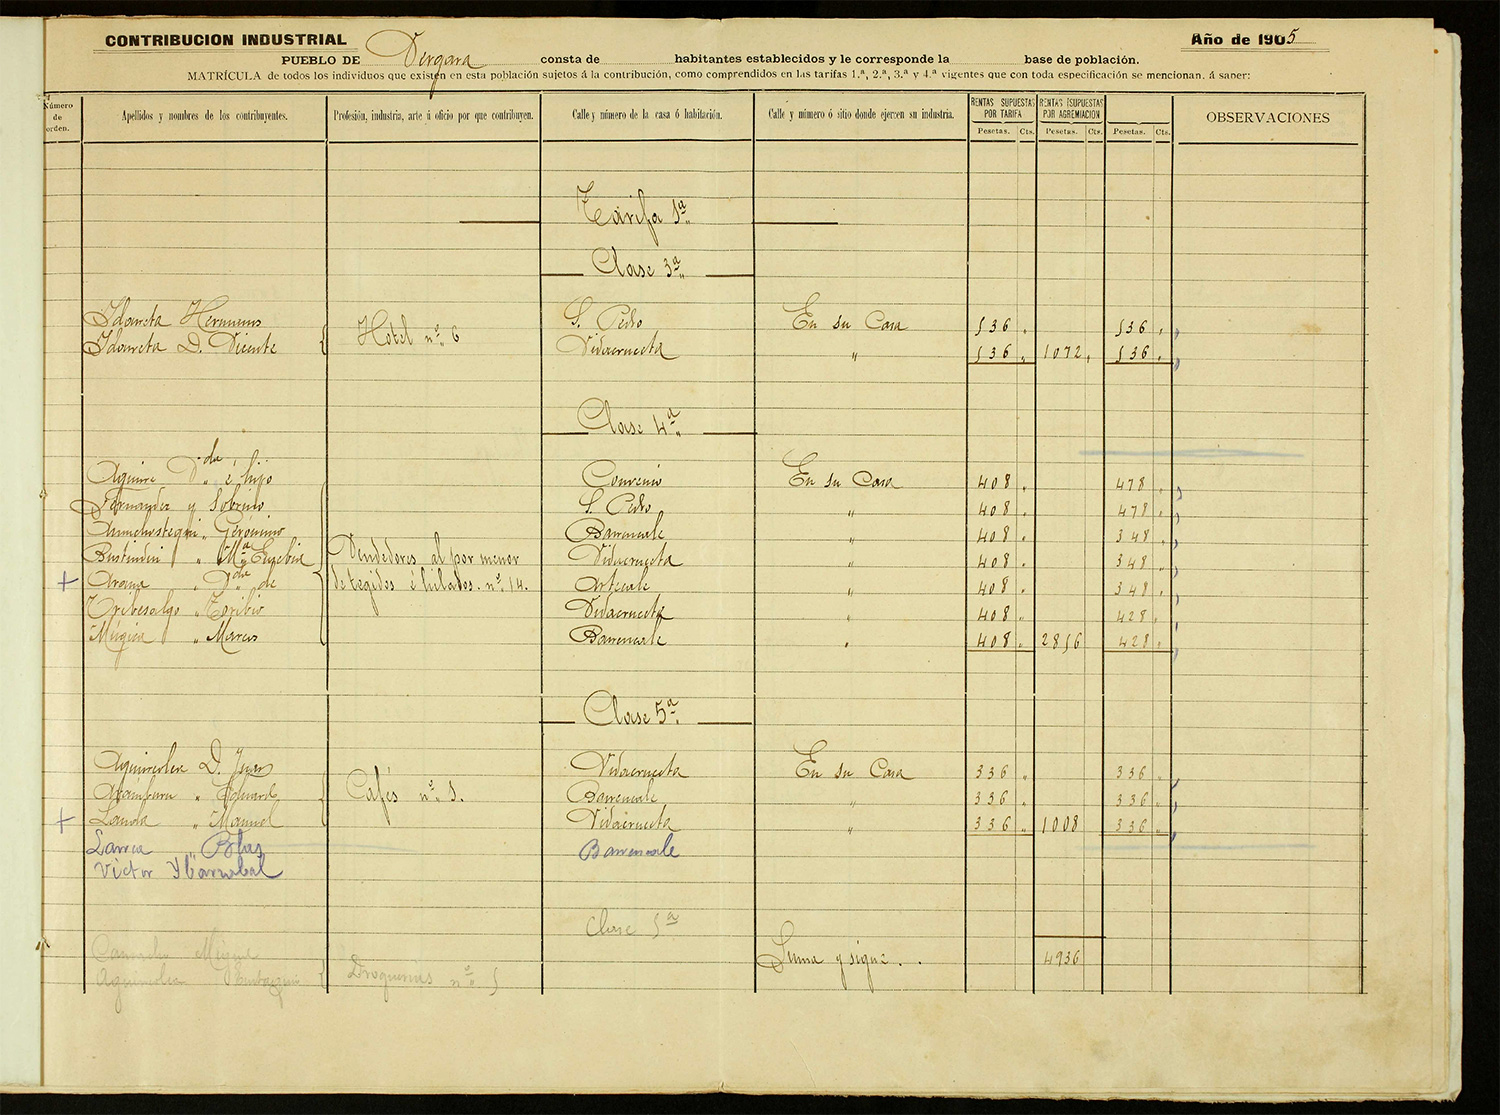 CONTRIBUCION INDUSTRIAL
Año de 1905
PUEBLO DE Vergara consta de habitantes establecidos y le corresponde la base de población.
MATRÍCULA de todos los individuos que existen en esta población sujetos á la contribución, como comprendidos en las tarifas 1.ª, 2.ª, 3.ª y 4.ª vigentes que con toda especificación se mencionan, á saber:
Número de orden. Apellidos y nombres de los contribuyentes. Profesión, industria, arte ú oficio por que contribuyen. Calle y número de la casa ó habitación. Calle y número ó sitio donde ejercen su industria. RENTAS SUPUESTAS POR TARIFA RENTAS SUPUESTAS POR AGREMIACIÓN OBSERVACIONES
Pesetas. Cts. Pesetas. Cts. Pesetas. Cts.
Tarifa 1ª
Clase 3ª
Hermanos S. Pedro En su Casa 536 536
D. Vicente Hotel nº 6 Vidacruceta " 536 1072 536
Clase 4ª
Aguirre Vda é hijo Convenio En su Casa 408 478
Fernandez y Sobrino S. Pedro " 408 478
Gerónimo Barrencale " 408 348
" Mª Vendedores al por menor Vidacruceta " 408 348
+ Arana " Vda de de tegidos é hilados. nº 14. Artecale " 408 348
" Toribio Vidacruceta " 408 428
Múgica " Marcos Barrencale " 408 2856 428
Clase 5ª
D. Juan Vidacruceta En su Casa 336 336
Aramburu " Eduardo Cafés nº 1. Barrencale " 336 336
+ Landa " Manuel Vidacruceta " 336 1008 336
Larrea " Blas Barrencale
Victor
Clase 5ª
Suma y sigue . . 4936
Droguerías nº 5